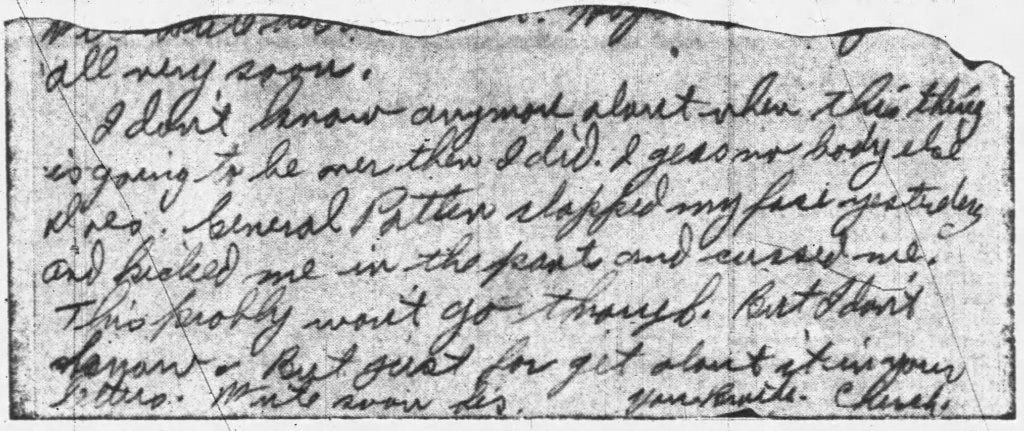 all very soon.
I don't know anymore about when this thing
is going to be over then I did. I gess no body else
does. General Patten slapped my face yesterday
and kicked me in the pants and cussed me.
This probly won't go through. But I don't
know. But just for get about it in your
letters. Write soon Sis. Your Chuck.